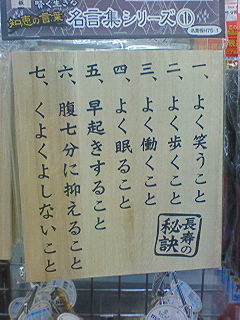 賢く生きる
知恵の言葉
名言集シリーズ①
一、よく笑うこと
二、よく歩くこと
三、よく働くこと
四、よく眠ること
五、早起きすること
六、腹七分に抑えること
七、くよくよしないこと
長寿の
秘訣